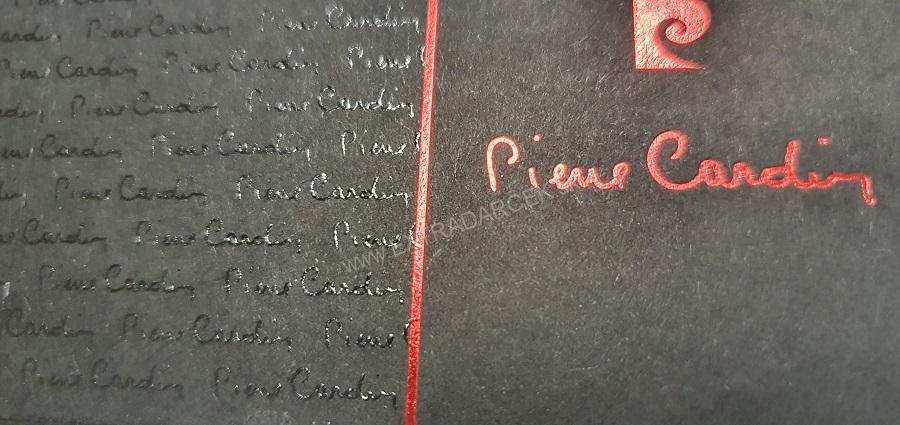 Pierre Cardin
Cardin Pierre Cardin Pierre Cardin
Pierre Cardin Pierre Cardin Pierre
Pierre Cardin Pierre Cardin
Cardin Pierre Cardin Pierre
Pierre Cardin Pierre Cardin
Cardin Pierre Cardin Pierre
Pierre Cardin Pierre Cardin
Cardin Pierre Cardin Pierre C
Pierre Cardin Pierre Cardin